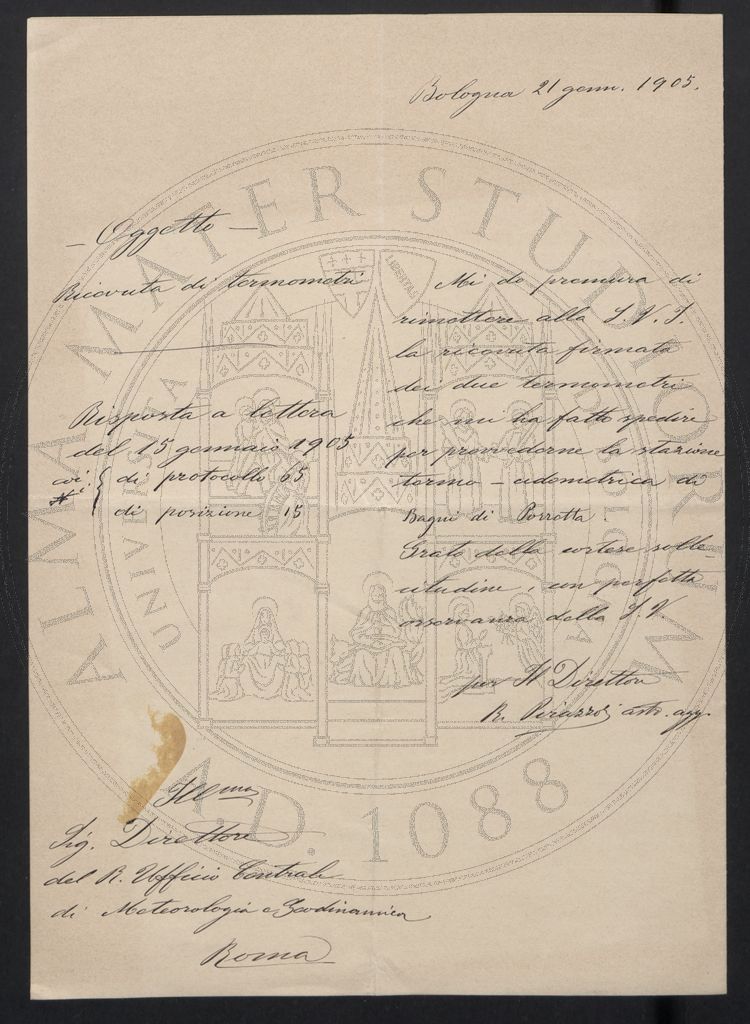 Bologna 21 genn. 1905.
— Oggetto —
Ricevuta di termometri
Risposta a lettera
del 15 gennaio 1905
di protocollo 65
di posizione 15
Mi do premura di
rimettere alla S. V. I.
la ricevuta firmata
dei due termometri
che mi ha fatto spedire
per provvederne la stazione
termo-udometrica di
Bagni di Porretta.
Grato della cortese solle-
citudine, con perfetta
osservanza della S. V.
per Il Direttore
R. Pirazzoli astr. agg.
Ill.mo
Sig. Direttore
del R. Ufficio Centrale
di Meteorologia e Geodinamica
Roma
ALMA MATER STUDIORUM
A.D. 1088
LIBERTAS